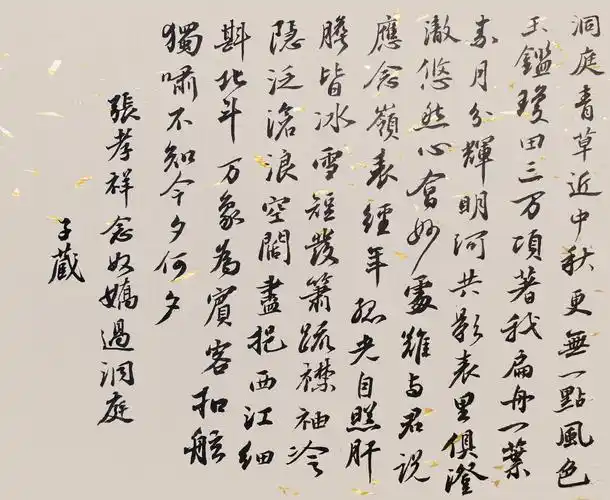 洞庭青草近中秋更無一點風色
玉鑑瓊田三万頃著我扁舟一葉
素月分輝明河共影表里俱澄
澈悠然心會妙處難与君説
應念嶺表經年孤光自照肝
膽皆冰雪短髮蕭疏襟袖冷
隠泛滄浪空闊盡挹西江細
斟北斗万象為賓客扣舷
獨嘯不知今夕何夕
張孝祥念奴嬌過洞庭
子蔵